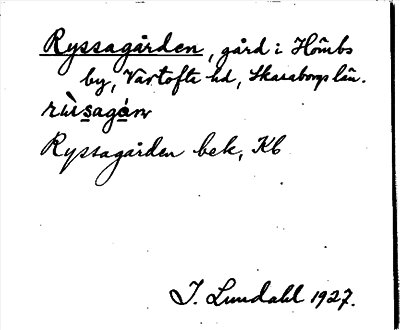 Ryssagården, gård i Hömbs
by, Vartofte hd, Skaraborgs län.
rùsagán
Ryssagården bek, Kb
I. Lundahl 1927.